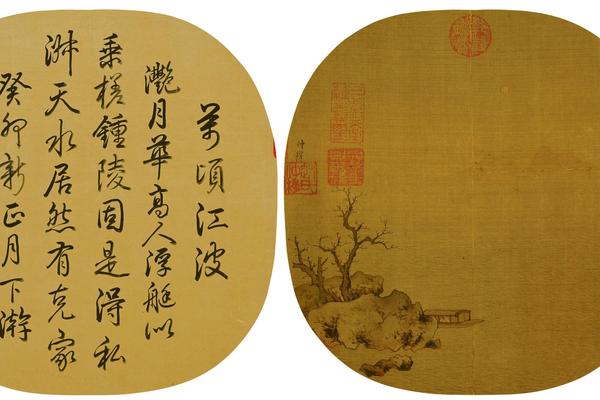 萬頃江波
灩月華高人浮艇似
乘槎鍾陵固是得私
淑天水居然有克家
癸卯新正月下澣
仲穆